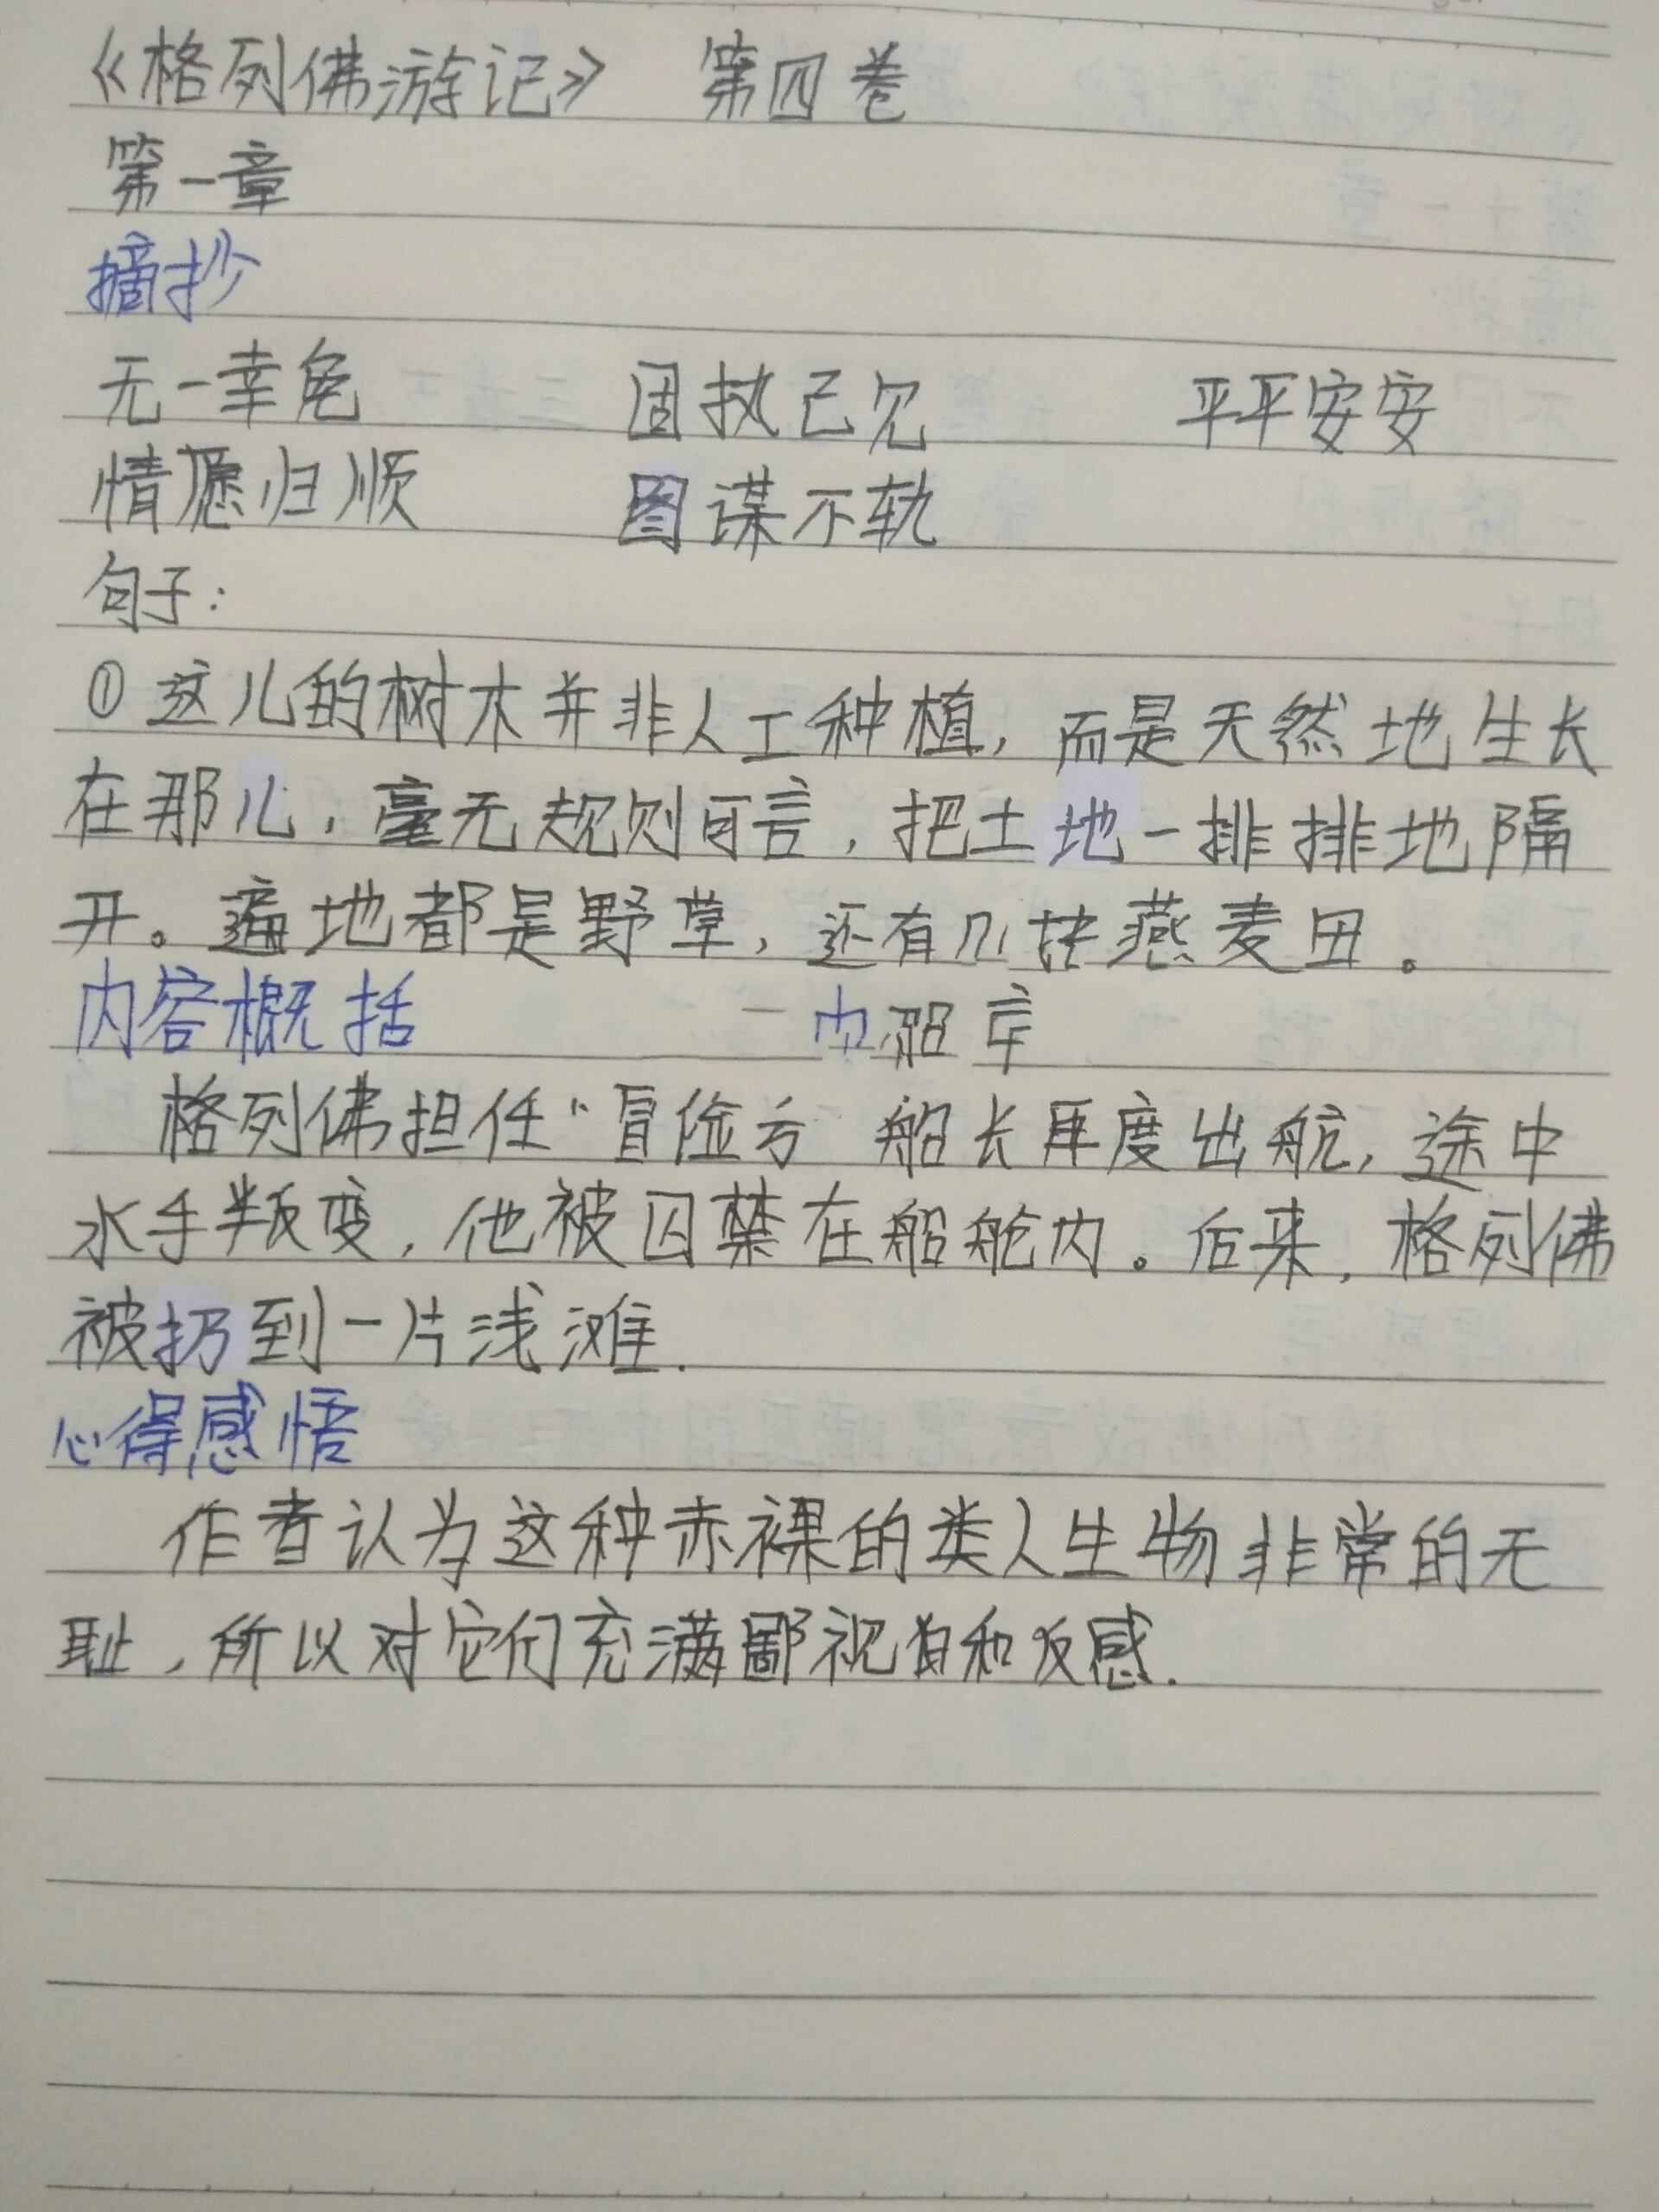 《格列佛游记》 第四卷
第一章
摘抄
无一幸免 固执己见 平平安安
情愿归顺 图谋不轨
句子：
①这儿的树木并非人工种植，而是天然地生长
在那儿，毫无规则可言，把土地一排排地隔
开。遍地都是野草，还有几块燕麦田。
内容概括
格列佛担任“冒险号 船长再度出航，途中
水手叛变，他被囚禁在船舱内。后来，格列佛
被扔到一片浅滩.
心得感悟
作者认为这种赤裸的类人生物非常的无
耻，所以对它们充满鄙视和反感.